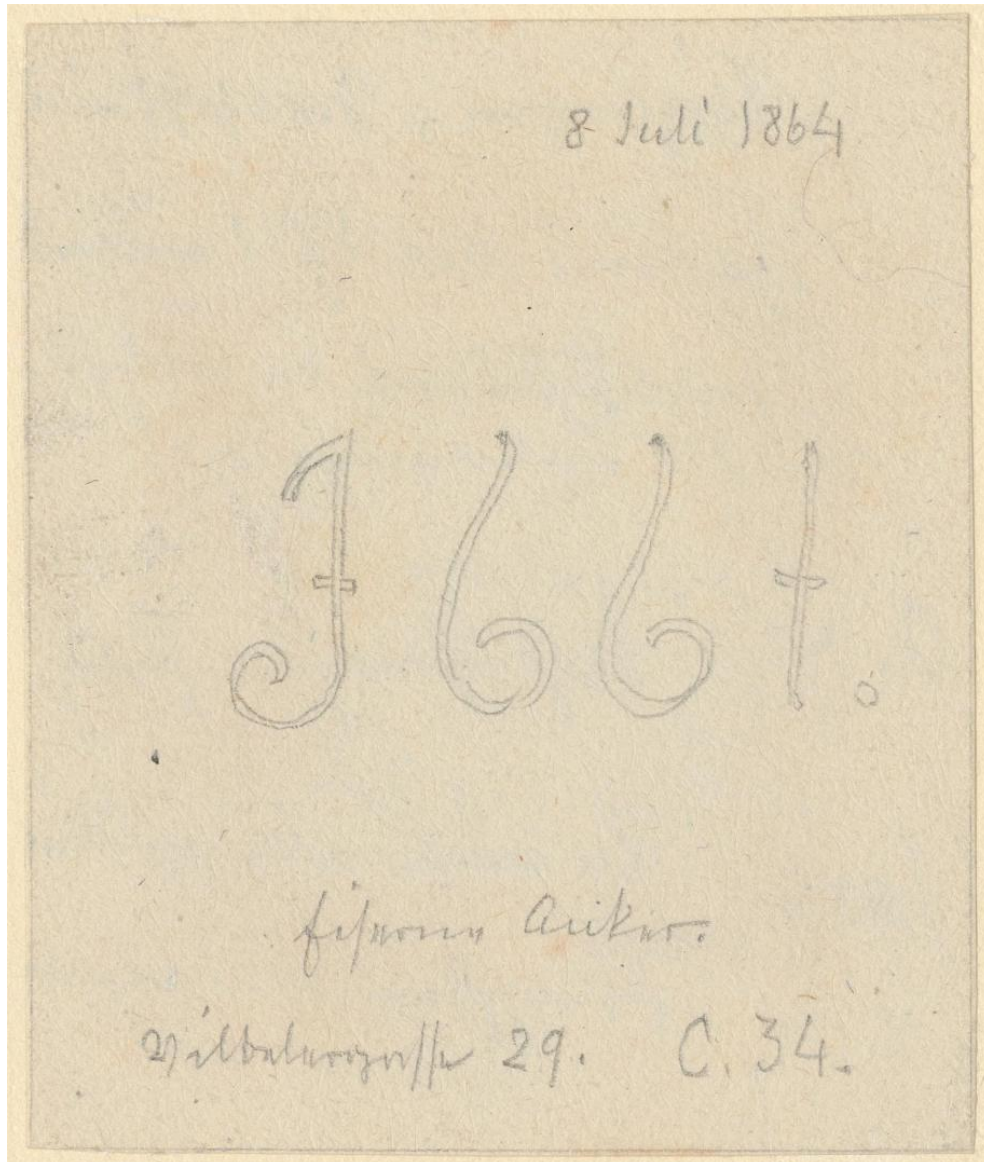 8 Juli 1864
1661.
Eiserne Anker.
Vilbelergasse 29. C. 34.